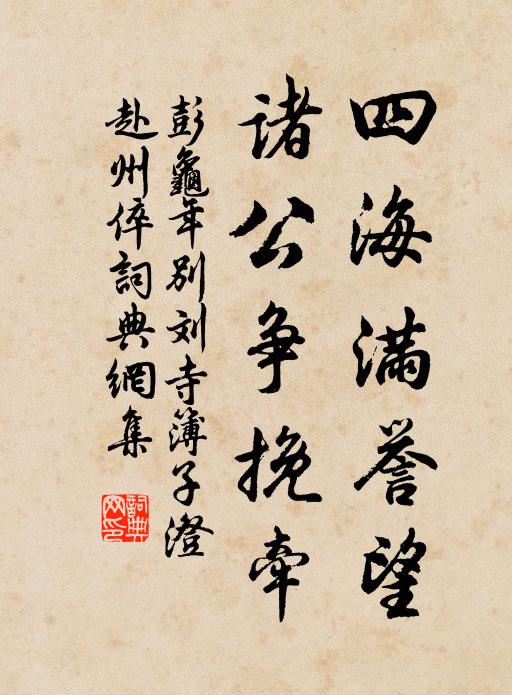 四海满誉望
诸公争挽牵
彭龜年别刘寺簿子澄
赴州倅詞典網集
詞典网印